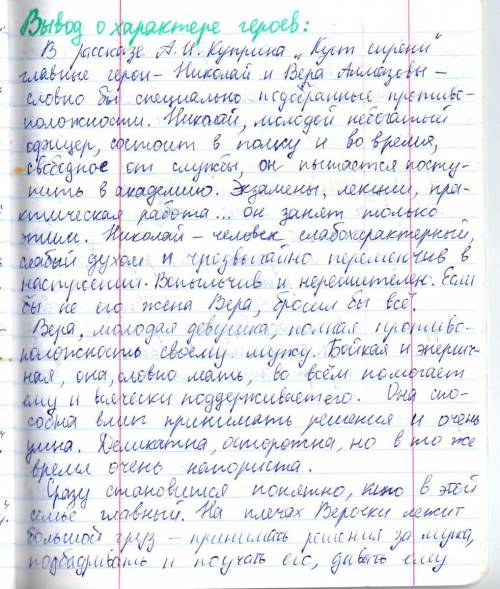 Вывод о характере героев:
В рассказе А.И. Куприна „Куст сирени"
главные герои – Николай и Вера Алмазовы –
словно бы специально подобранные противо-
положности. Николай, молодой небогатый
офицер, состоит в полку и во время,
свободное от службы, он пытается посту-
пить в академию. Экзамены, лекции, пра-
ктическая работа... он занят только
этим. Николай – человек слабохарактерный,
слабый духом и чрезвычайно переменчив в
настроении. Вспыльчив и нерешителен. Если
бы не его жена Вера, бросил бы всё.
Вера, молодая девушка, полная противо-
положность своему мужу. Бойкая и энергич-
ная, она, словно мать, во всём помогает
ему и всячески поддерживает его. Она спо-
собна влиг принимать решения и очень
умна. Деликатна, осторожна, но в то же
время очень напориста.
Сразу становится понятно, кто в этой
семье главный. На плечах Верочки лежит
большой груз – принимать решения за мужа,
подбадривать и поучать его, давать ему